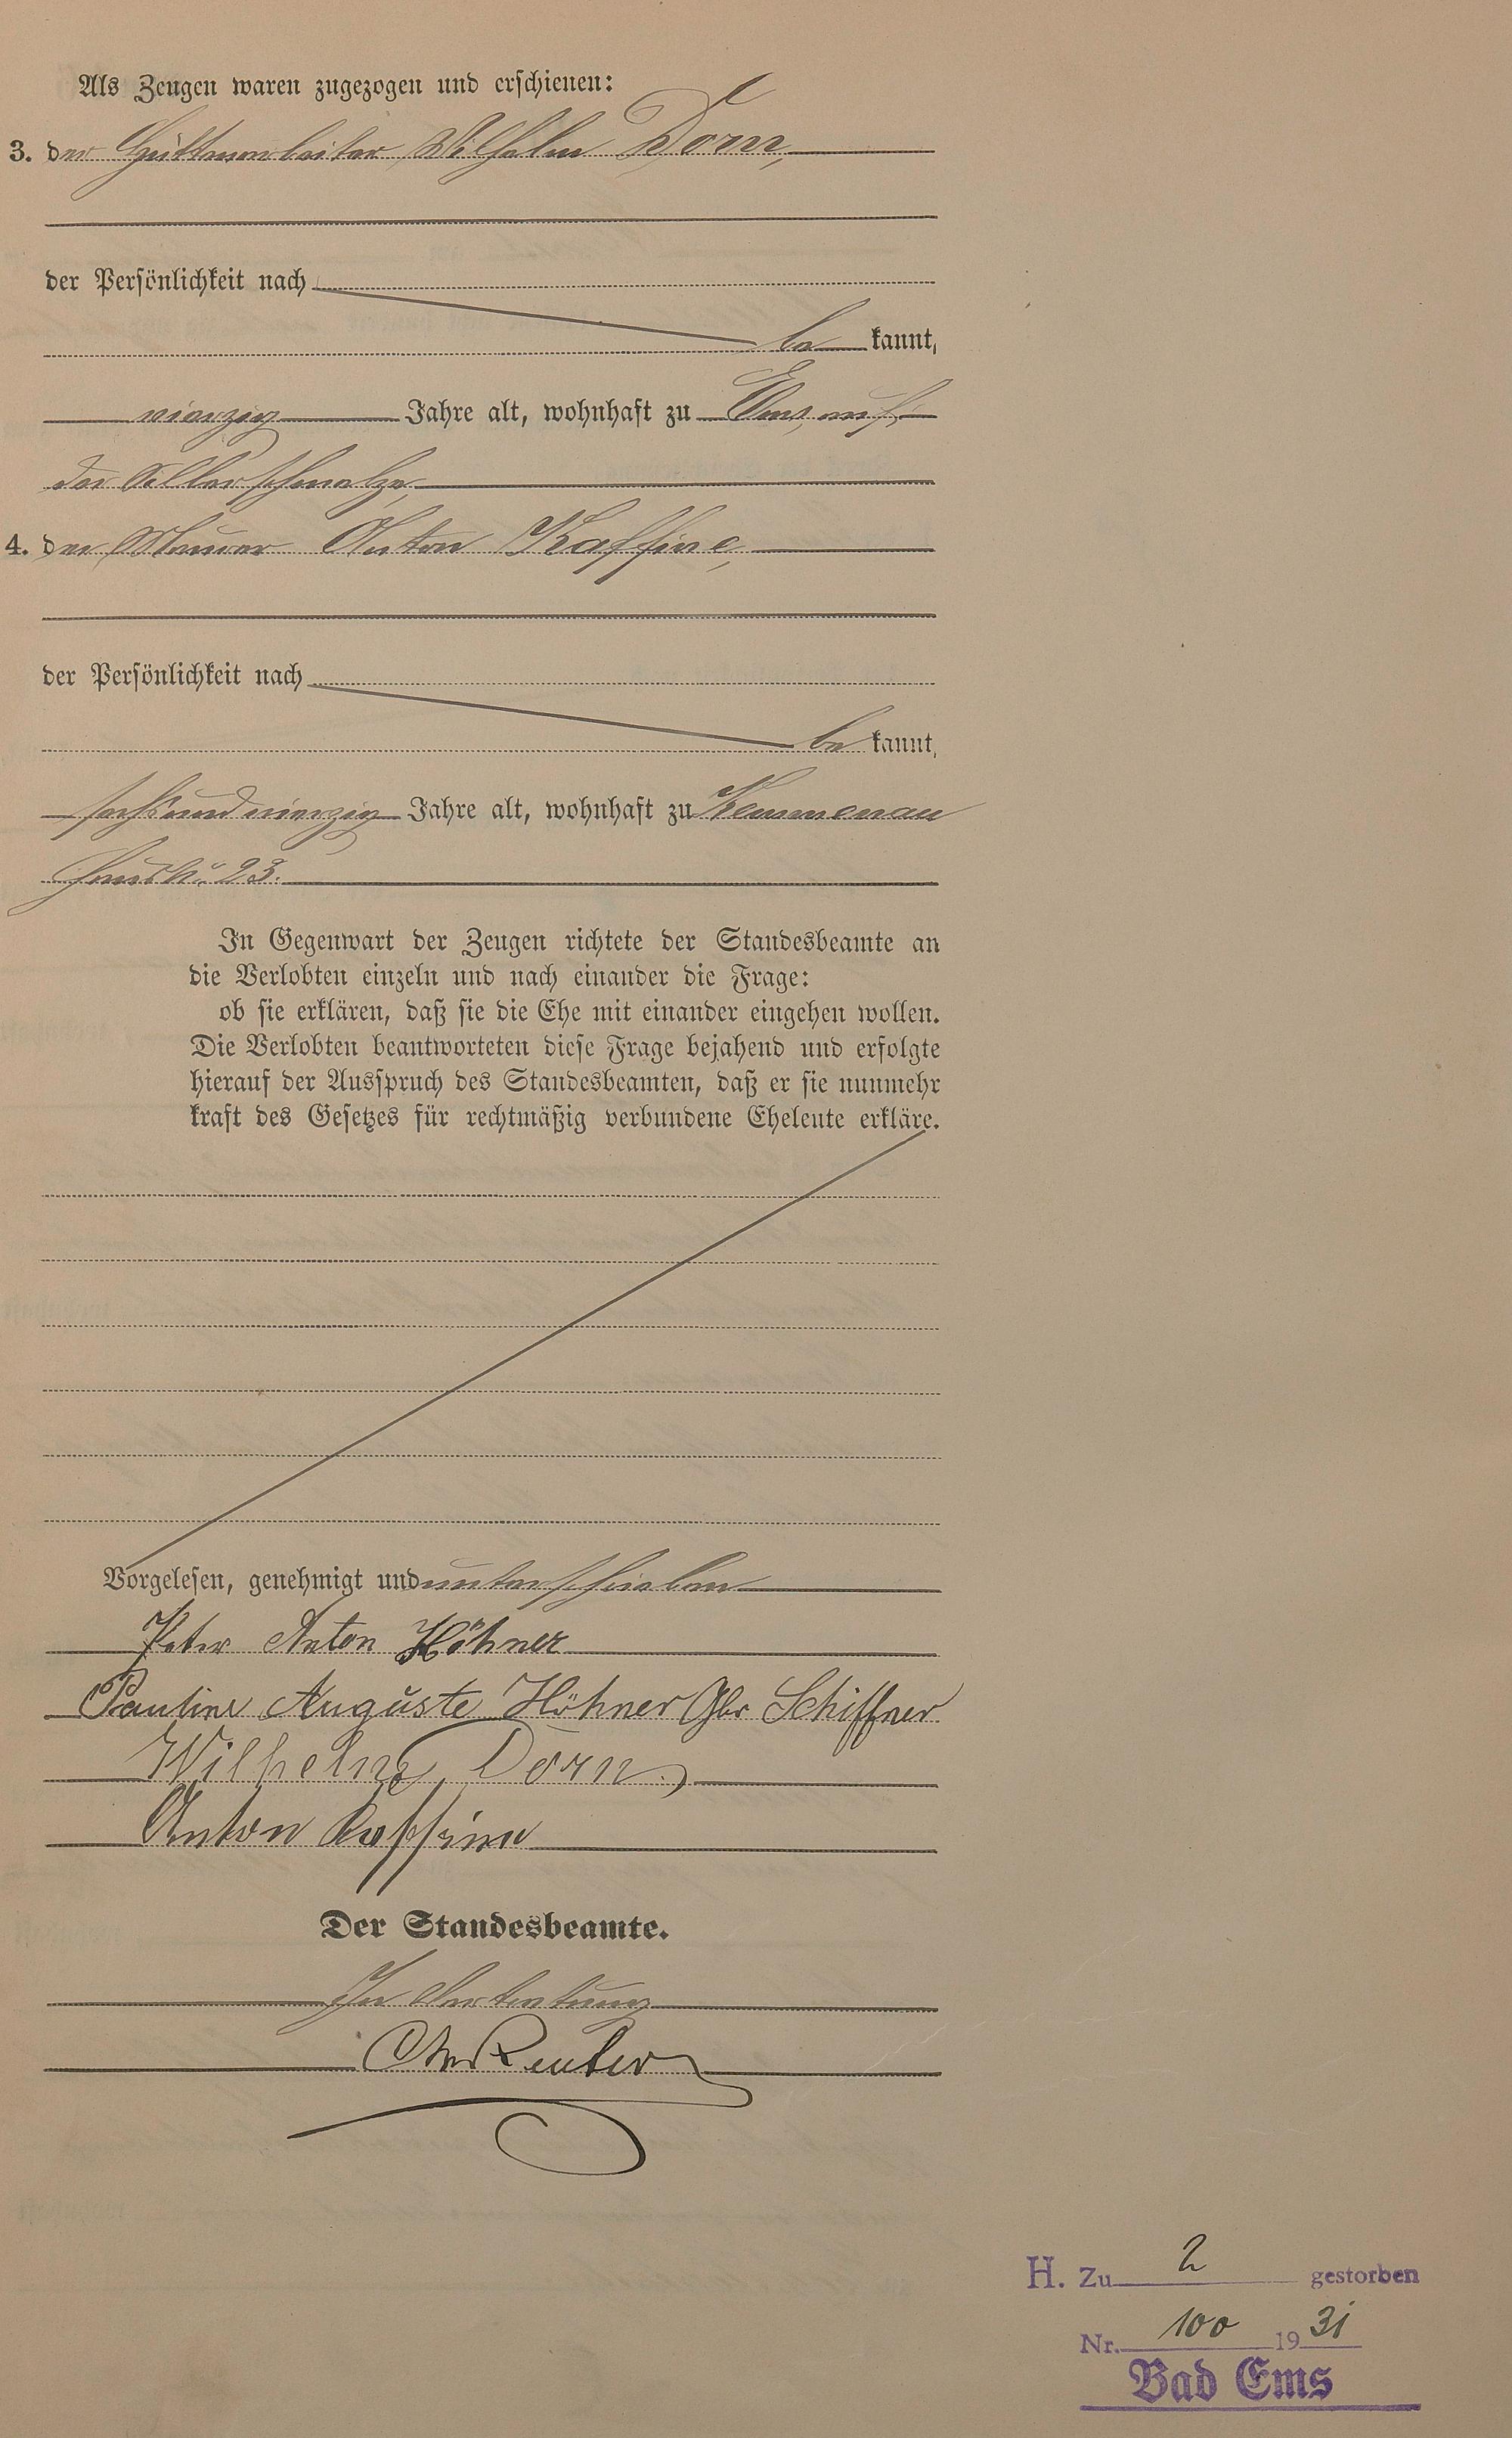 Als Zeugen waren zugezogen und erschienen:
3. der Hüttenarbeiter Wilhelm Dorn,
der Persönlichkeit nach
be kannt,
vierzig Jahre alt, wohnhaft zu Ems, auf
der Silberschmelze,
4. der Maurer Anton Kaffine,
der Persönlichkeit nach
be kannt,
sechsundvierzig Jahre alt, wohnhaft zu Kemmenau
Haus Nr. 23.
In Gegenwart der Zeugen richtete der Standesbeamte an
die Verlobten einzeln und nach einander die Frage:
ob sie erklären, daß sie die Ehe mit einander eingehen wollen.
Die Verlobten beantworteten diese Frage bejahend und erfolgte
hierauf der Ausspruch des Standesbeamten, daß er sie nunmehr
kraft des Gesetzes für rechtmäßig verbundene Eheleute erkläre.
Vorgelesen, genehmigt und unterschrieben
Peter Anton Höhner
Pauline Auguste Höhner Gbr Schiffner
Wilhelm Dorn
Anton Kaffine
Der Standesbeamte.
In Vertretung
Reuter
H. Zu 2 gestorben
Nr. 100 1931
Bad Ems